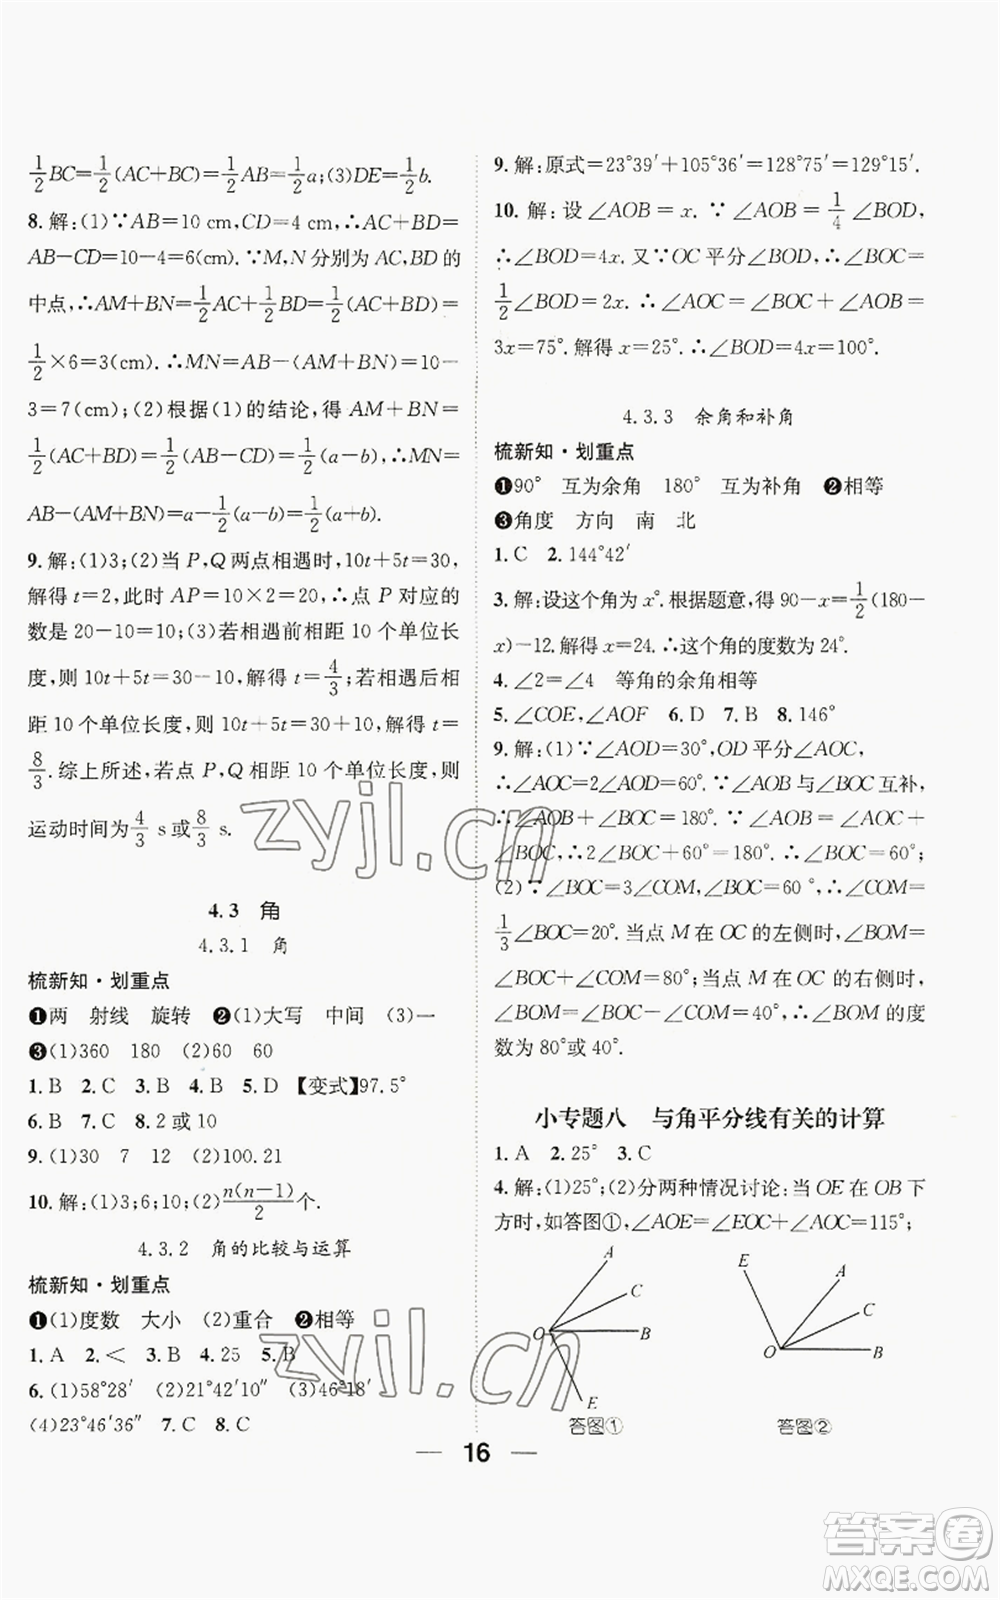 1/2BC=1/2(AC+BC)=1/2AB=1/2a;(3)DE=1/2b.
8.解:(1)∵AB=10 cm,CD=4 cm,∴AC+BD=
AB-CD=10-4=6(cm).∵M,N分别为AC,BD的
中点,∴AM+BN=1/2AC+1/2BD=1/2(AC+BD)=
1/2×6=3(cm).∴MN=AB-(AM+BN)=10-
3=7(cm);(2)根据(1)的结论,得AM+BN=
1/2(AC+BD)=1/2(AB-CD)=1/2(a-b).∴MN=
AB-(AM+BN)=a-1/2(a-b)=1/2(a+b).
9.解:(1)3;(2)当P,Q两点相遇时,10t+5t=30,
解得t=2,此时AP=10×2=20,∴点P对应的
数是20-10=10;(3)若相遇前相距10个单位长
度,则10t+5t=30-10,解得t=4/3;若相遇后相
距10个单位长度,则10t+5t=30+10,解得t=
8/3.综上所述,若点P,Q相距10个单位长度,则
运动时间为4/3 s或8/3 s.
4.3 角
4.3.1 角
梳新知·划重点
❶两 射线 旋转 ❷(1)大写 中间 (3)一
❸(1)360 180 (2)60 60
1.B 2.C 3.B 4.B 5.D 【变式】97.5°
6.B 7.C 8.2或10
9.(1)30 7 12 (2)100.21
10.解:(1)3;6;10;(2)n(n-1)/2个.
4.3.2 角的比较与运算
梳新知·划重点
❶(1)度数 大小 (2)重合 ❷相等
1.A 2.< 3.B 4.25 5.B
6.(1)58°28′ (2)21°42′10″ (3)46°18′
(4)23°46′36″ 7.C 8.C
9.解:原式=23°39′+105°36′=128°75′=129°15′.
10.解:设∠AOB=x.∵∠AOB=1/4∠BOD,
∴∠BOD=4x.又∵OC平分∠BOD,∴∠BOC=
1/2∠BOD=2x.∴∠AOC=∠BOC+∠AOB=
3x=75°.解得x=25°.∴∠BOD=4x=100°.
4.3.3 余角和补角
梳新知·划重点
❶90° 互为余角 180° 互为补角 ❷相等
❸角度 方向 南 北
1.C 2.144°42′
3.解:设这个角为x°.根据题意,得90-x=1/2(180-
x)-12.解得x=24.∴这个角的度数为24°.
4.∠2=∠4 等角的余角相等
5.∠COE,∠AOF 6.D 7.B 8.146°
9.解:(1)∵∠AOD=30°,OD平分∠AOC,
∴∠AOC=2∠AOD=60°.∵∠AOB与∠BOC互补,
∴∠AOB+∠BOC=180°.∵∠AOB=∠AOC+
∠BOC,∴2∠BOC+60°=180°.∴∠BOC=60°;
(2)∵∠BOC=3∠COM,∠BOC=60°,∴∠COM=
1/3∠BOC=20°.当点M在OC的左侧时,∠BOM=
∠BOC+∠COM=80°;当点M在OC的右侧时,
∠BOM=∠BOC-∠COM=40°,∴∠BOM的度
数为80°或40°.
小专题八 与角平分线有关的计算
1.A 2.25° 3.C
4.解:(1)25°;(2)分两种情况讨论:当OE在OB下
方时,如答图①,∠AOE=∠EOC+∠AOC=115°;
A
C
O
B
E
答图①
E
A
C
O
B
答图②
16
zyjl.cn
zyjl.cn
答案圈
MXQE.COM